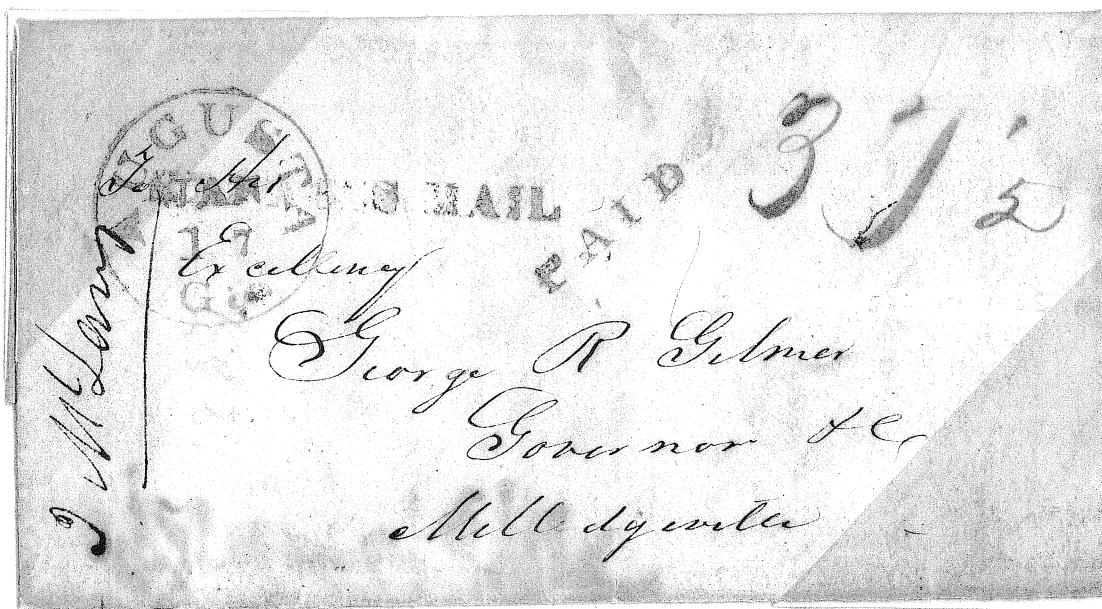 AUGUSTA
17
Ga
EXPRESS MAIL
PAID
37 1/2
To His
Excellency
George R Gilmer
Governor &c
Milledgeville